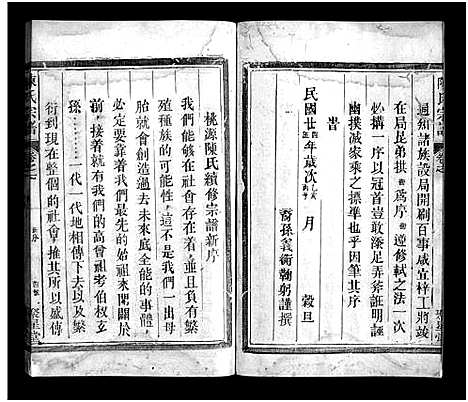 陳氏宗譜
通知諸族設局開刷百事咸宜梓工將竣
在局昆弟拱為序遵修軾之法一次
必搆一序以冠首豈敢添足弄斧証明誣
幽撲滅家乘之標準也乎因筆其序
旹
民國廿四年歲次乙亥 月 穀旦
裔孫義衡鞠躬謹撰
桃源陳氏續修宗譜新序
我們能够在社會生存着並且負有繁
殖種族的可能性這不是我們一出母
胎就會創造過去未來底全能的事體
必定要靠着我們最先的始祖來開闢於
前就有我們的高曾祖考伯叔立
孫一代一代地相傳下去以及繁
衍到現在整個的社會推其所以感傳
陳氏宗譜
卷之
聚星堂